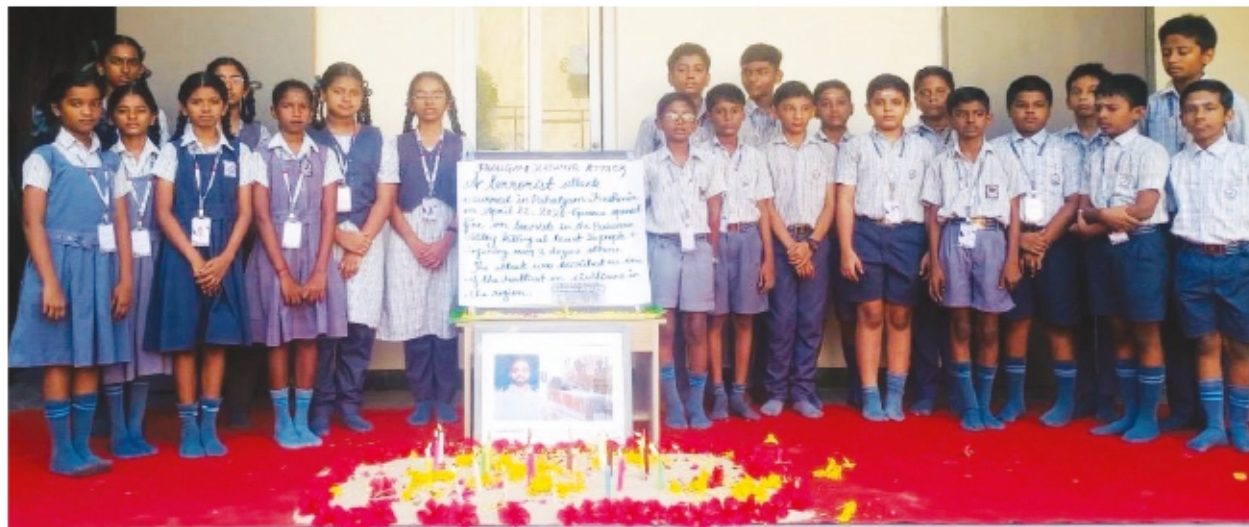 PAHALGAM TERROR ATTACK
A terrorist attack
occurred in Pahalgam, Kashmir
on April 22, 2025. Gunmen opened
fire on tourists in the Baisaran
Valley killing at least 26 people &
injuring many dozen others.
The attack was described as one
of the deadliest on civilians in
the region.